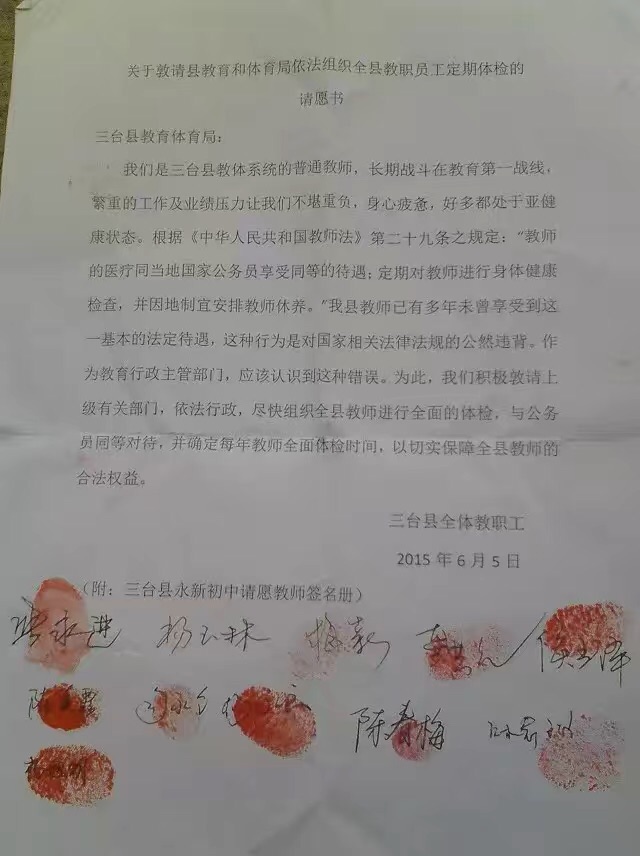 关于敦请县教育和体育局依法组织全县教职员工定期体检的
请愿书
三台县教育体育局：
我们是三台县教体系统的普通教师，长期战斗在教育第一战线，
繁重的工作及业绩压力让我们不堪重负，身心疲惫，好多都处于亚健
康状态。根据《中华人民共和国教师法》第二十九条之规定：“教师
的医疗同当地国家公务员享受同等的待遇；定期对教师进行身体健康
检查，并因地制宜安排教师休养。”我县教师已有多年未曾享受到这
一基本的法定待遇，这种行为是对国家相关法律法规的公然违背。作
为教育行政主管部门，应该认识到这种错误。为此，我们积极敦请上
级有关部门，依法行政，尽快组织全县教师进行全面的体检，与公务
员同等对待，并确定每年教师全面体检时间，以切实保障全县教师的
合法权益。
三台县全体教职工
2015 年 6 月 5 日
（附：三台县永新初中请愿教师签名册）
杨玉林
陈春梅